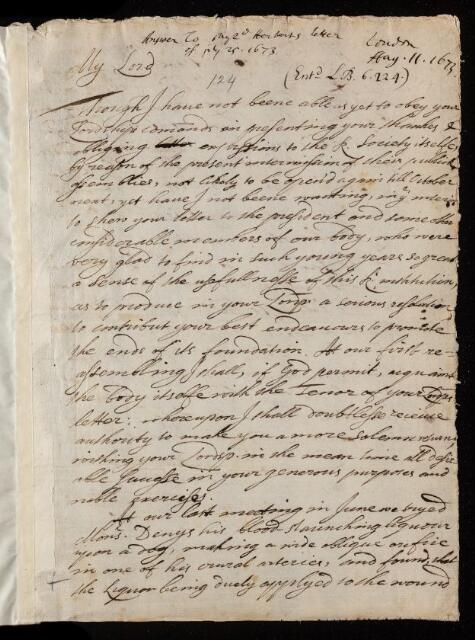 Answer to my Ld Herberts letter
of july 25. 1673.
London
Aug. 11. 1673.
My Lord
124
(Entd L.B. 6. 224.)
Though I have not beene able as yet to obey your
Lordships comands in presenting your thankes &
obliging expressions to the R. Society itselfe,
by reason of the present intermission of their publick
assemblies, not likely to be open'd again till October
next; yet have I not beene wanting, in ye
to shew your letter to the president and some other
considerable members of our body, who were
very glad to find in such young years so great
a sense of the usefullnesse of this R. institution,
as to produce in your Lordp a serious resolution
to contribut your best endeavours to promote
the ends of its foundation. At our first re-
assembling I shall, if God permit, acquaint
the body itselfe with the Tenor of your Lordps
letter: whereupon I shall doubtlesse receive
authority to make you a more solemn
wishing your Lordsp in the mean time all desir-
able successe in your generous purposes and
noble exercises.
At our last meeting in June we tryed
Mons. Denys his blood-staunching liquour
upon a dog, making a wide oblique orifice
in one of his crural arteries, and found, that
the Liquor being duely applyed to the wound